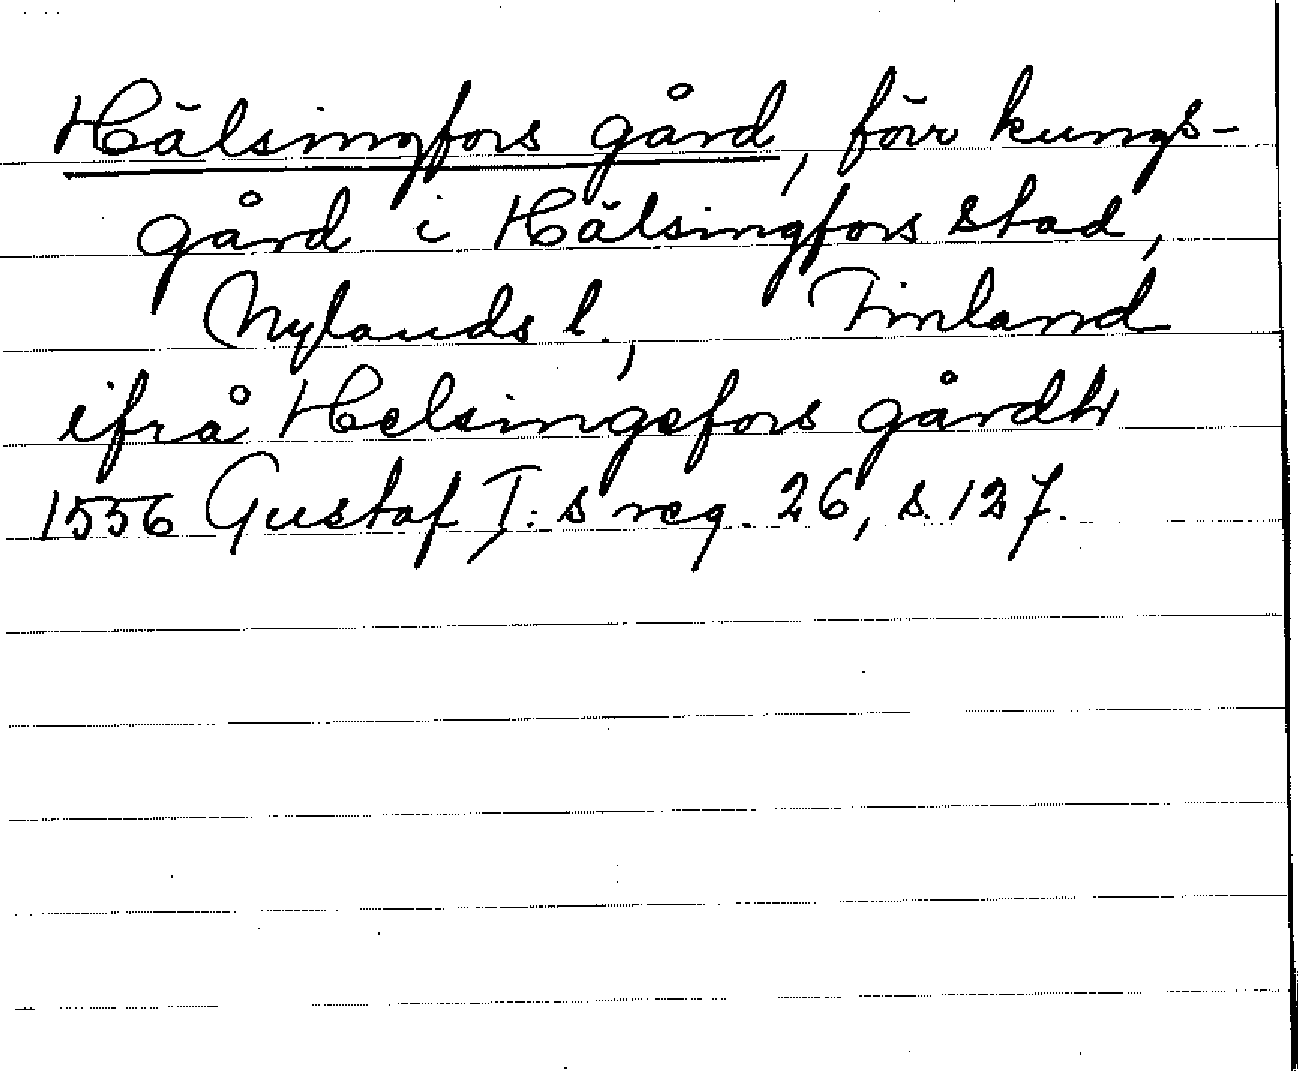 Hälsingfors gård, förr kungs-
gård i Hälsingfors stad,
Nylands l., Finland
ifrå Helsingefors gårdh
1556 Gustaf I:s reg. 26, s. 127.